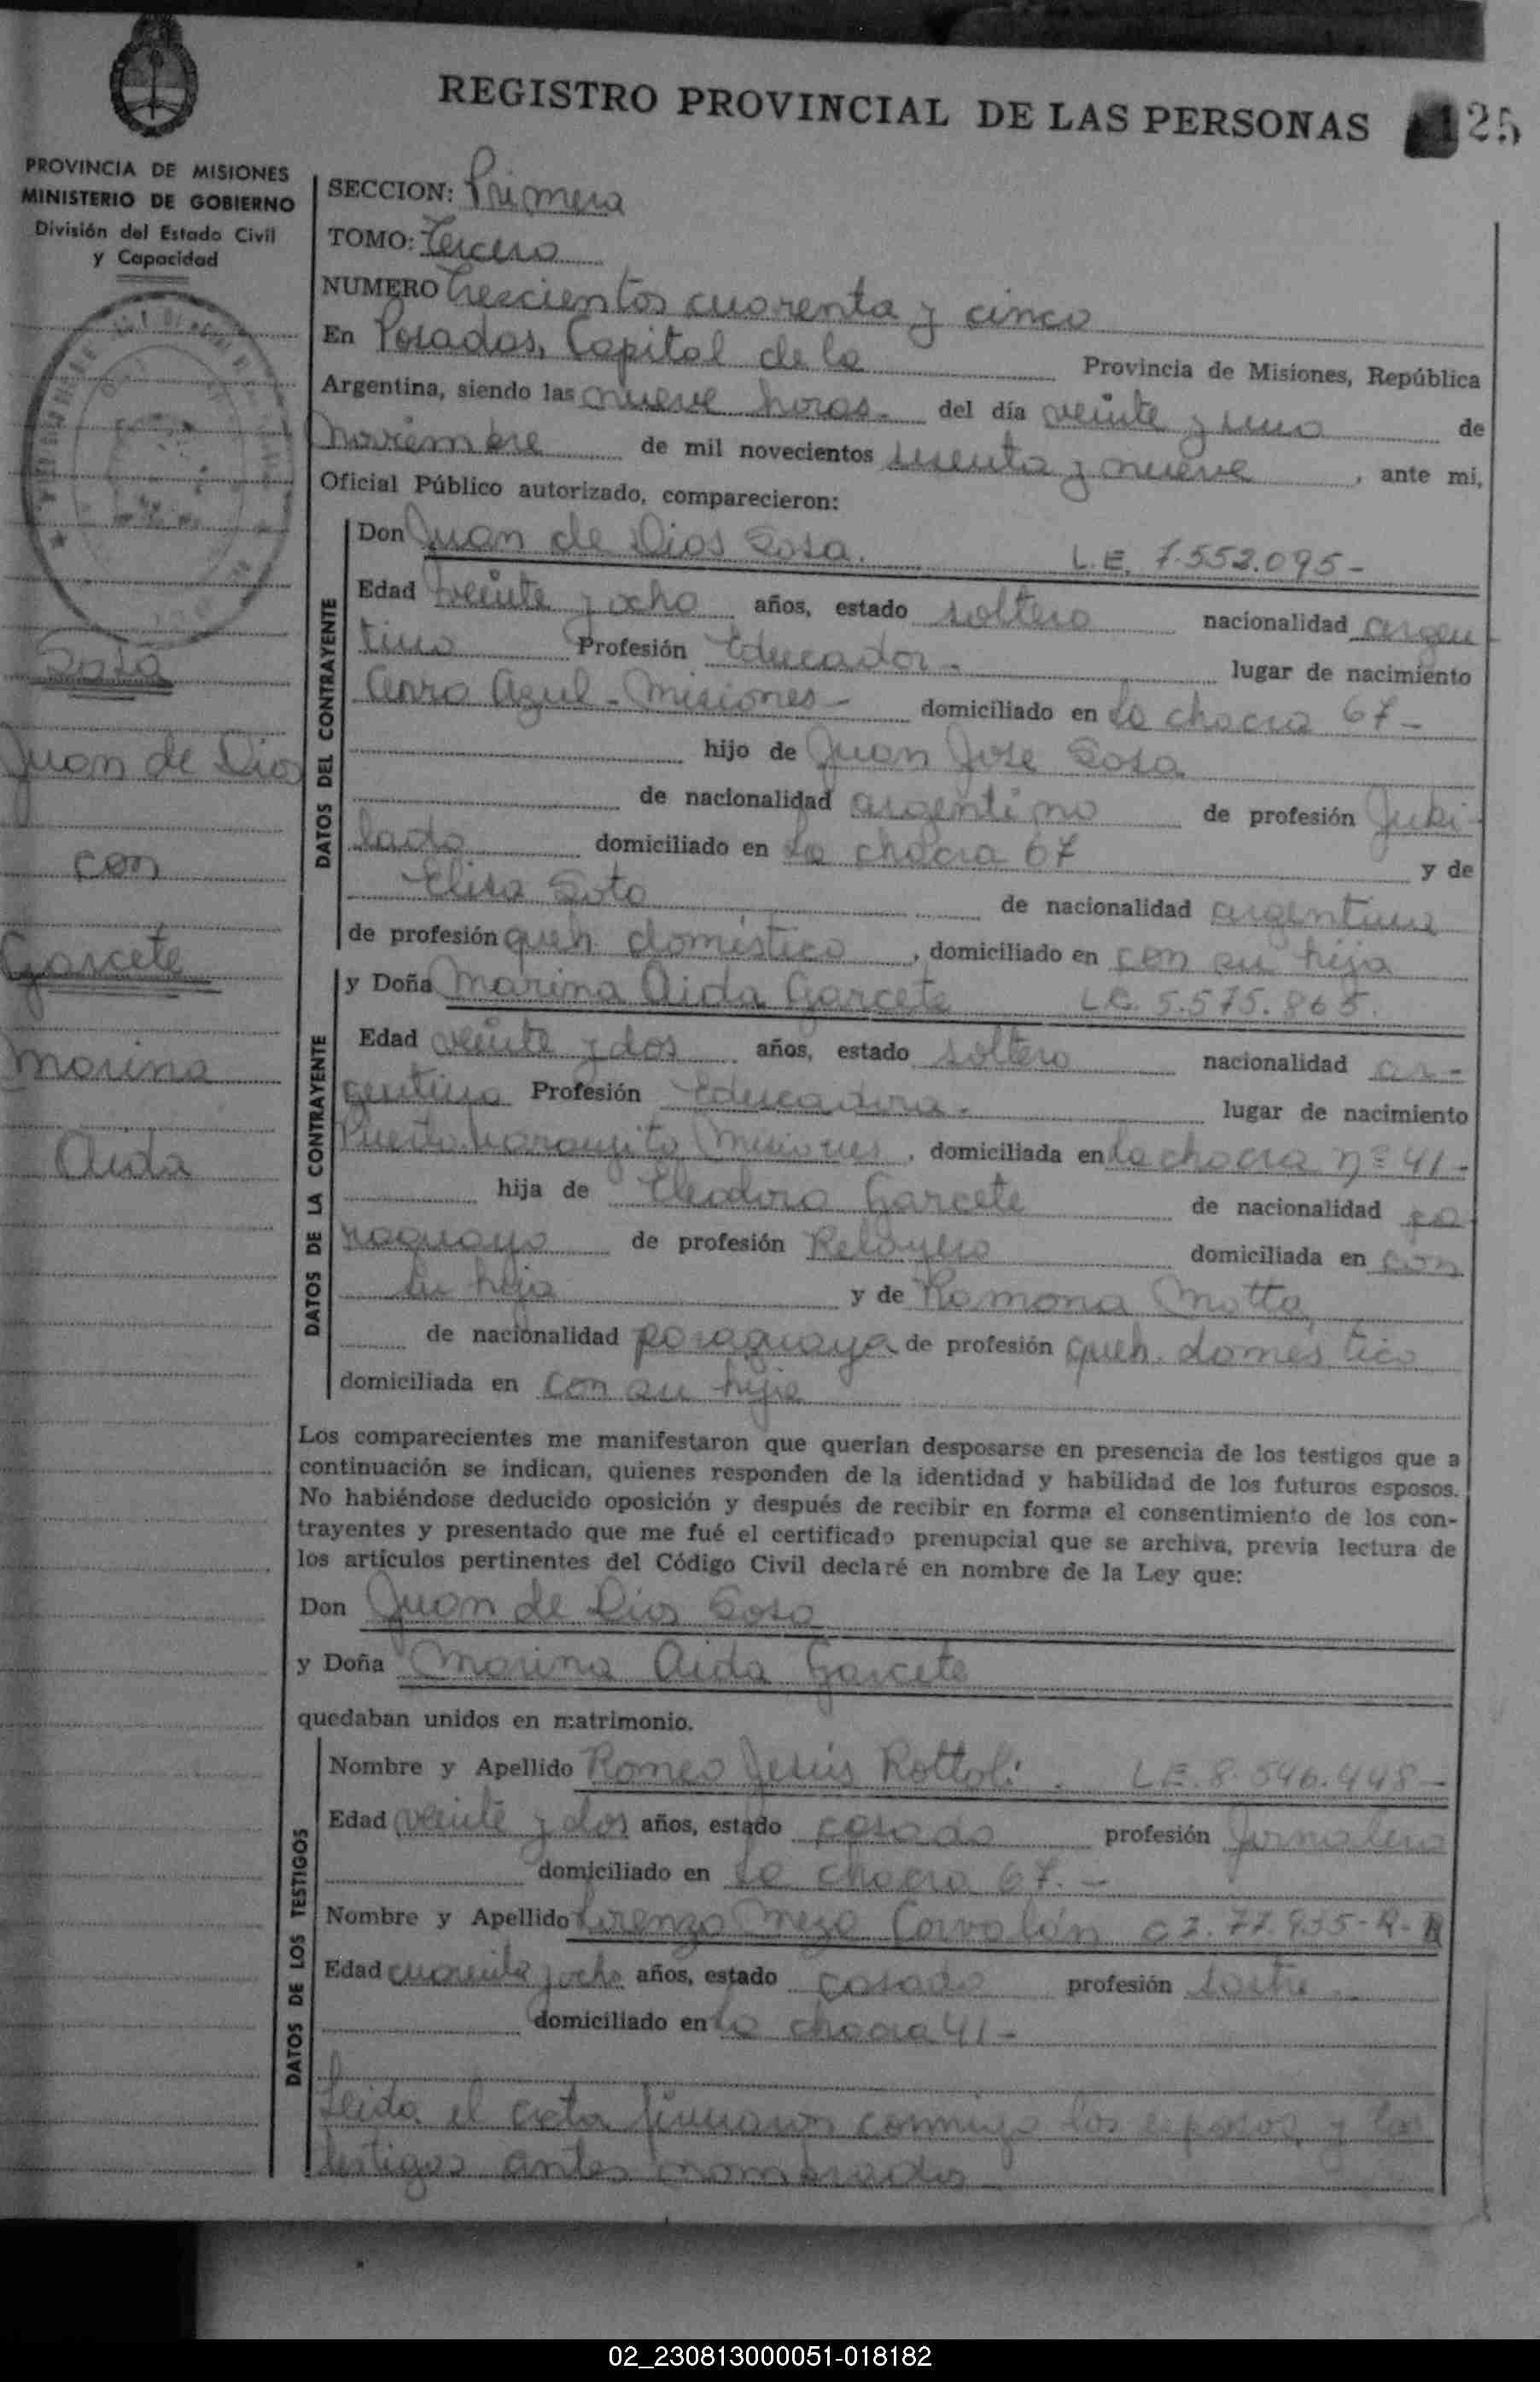 REGISTRO PROVINCIAL DE LAS PERSONAS 125
PROVINCIA DE MISIONES
MINISTERIO DE GOBIERNO
División del Estado Civil
y Capacidad
Sosa
Juan de Dios
con
Garcete
Marina
Aida
SECCION: Primera
TOMO: Tercero
NUMERO Trescientos cuarenta y cinco
En Posadas, Capital de la Provincia de Misiones, República
Argentina, siendo las nueve horas- del día veinte y uno de
Noviembre de mil novecientos sesenta y nueve, ante mi,
Oficial Público autorizado, comparecieron:
DATOS DEL CONTRAYENTE
Don Juan de Dios Sosa. L.E. 7.552.095-
Edad veinte y ocho años, estado soltero nacionalidad argen
tino Profesión Educador- lugar de nacimiento
Cerro Azul- Misiones- domiciliado en la chacra 67-
hijo de Juan Jose Sosa
de nacionalidad argentino de profesión Jubi-
lado domiciliado en La chacra 67 y de
Elisa Soto de nacionalidad argentina
de profesión queh. doméstico, domiciliado en con su hija
DATOS DE LA CONTRAYENTE
y Doña Marina Aida Garcete L.C. 5.575.865.
Edad veinte y dos años, estado soltera nacionalidad ar-
gentina Profesión Educadora- lugar de nacimiento
Puerto Naranjito Misiones, domiciliada en la chacra nº 41-
hija de Eleodoro Garcete de nacionalidad pa
raguayo de profesión Relojero domiciliada en con
su hija y de Ramona Motta
de nacionalidad paraguaya de profesión queh. doméstico
domiciliada en con su hija
Los comparecientes me manifestaron que querían desposarse en presencia de los testigos que a
continuación se indican, quienes responden de la identidad y habilidad de los futuros esposos.
No habiéndose deducido oposición y después de recibir en forma el consentimiento de los con-
trayentes y presentado que me fué el certificado prenupcial que se archiva, previa lectura de
los artículos pertinentes del Código Civil declaré en nombre de la Ley que:
Don Juan de Dios Sosa
y Doña Marina Aida Garcete
quedaban unidos en matrimonio.
DATOS DE LOS TESTIGOS
Nombre y Apellido Romeo Jesús Rottoli. L.E. 8.546.448-
Edad veinte y dos años, estado casado profesión Jornalero
domiciliado en la chacra 67.-
Nombre y Apellido Lorenzo Meza Corvalán
Edad cuarenta y ocho años, estado casado profesión sastre
domiciliado en la chacra 41-
Leida el acta firmaron conmigo los esposos y los
testigos antes nombrados
02_230813000051-018182